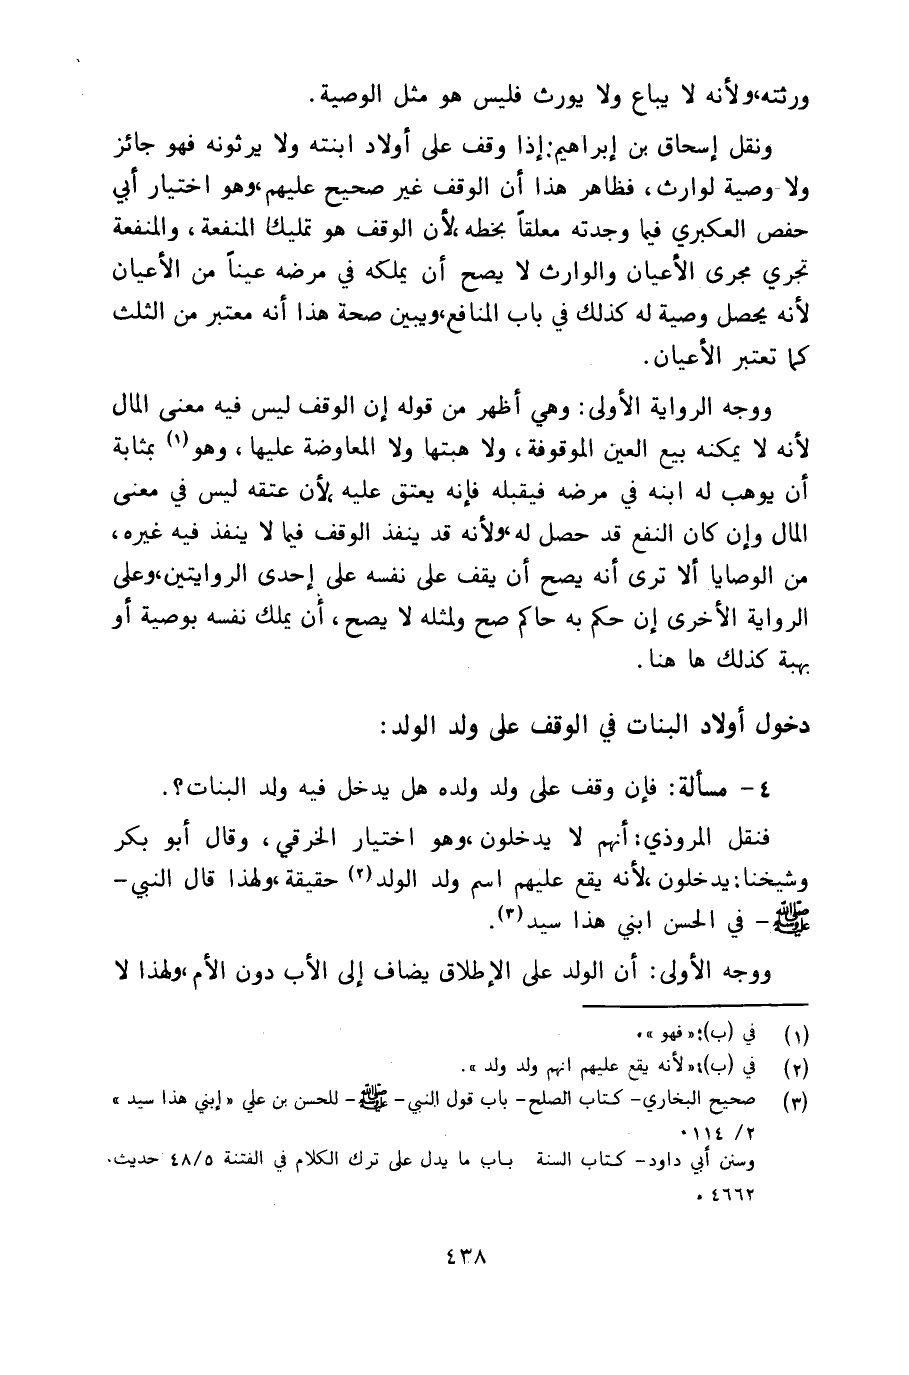 ورثته، ولأنه لا يباع ولا يورث فليس هو مثل الوصية.
ونقل إسحاق بن إبراهيم: إذا وقف على أولاد ابنته ولا يرثونه فهو جائز
ولا وصية لوارث، فظاهر هذا أن الوقف غير صحيح عليهم، وهو اختيار أبي
حفص العكبري فيما وجدته معلقاً بخطه، لأن الوقف هو تمليك المنفعة، والمنفعة
تجري مجرى الأعيان والوارث لا يصح أن يملكه في مرضه عيناً من الأعيان
لأنه يحصل وصية له كذلك في باب المنافع، ويبين صحة هذا أنه معتبر من الثلث
كما تعتبر الأعيان.
ووجه الرواية الأولى: وهي أظهر من قوله إن الوقف ليس فيه معنى المال
لأنه لا يمكنه بيع العين الموقوفة، ولا هبتها ولا المعاوضة عليها، وهو(١) بمثابة
أن يوهب له ابنه في مرضه فيقبله فإنه يعتق عليه، لأن عتقه ليس في معنى
المال وإن كان النفع قد حصل له، ولأنه قد ينفذ الوقف فيما لا ينفذ فيه غيره،
من الوصايا ألا ترى أنه يصح أن يقف على نفسه على إحدى الروايتين، وعلى
الرواية الأخرى إن حكم به حاكم صح ولمثله لا يصح، أن يملك نفسه بوصية أو
بهبة كذلك ها هنا.
دخول أولاد البنات في الوقف على ولد الولد:
٤ - مسألة: فإن وقف على ولد ولده هل يدخل فيه ولد البنات؟.
فنقل المروذي: أنهم لا يدخلون، وهو اختيار الخرقي، وقال أبو بكر
وشيخنا: يدخلون، لأنه يقع عليهم اسم ولد الولد(٢) حقيقة، ولهذا قال النبي -
ﷺ - في الحسن ابني هذا سيد(٣).
ووجه الأولى: أن الولد على الإطلاق يضاف إلى الأب دون الأم، ولهذا لا
(١) في (ب): « فهو ».
(٢) في (ب): « لأنه يقع عليهم انهم ولد ولد ».
(٣) صحيح البخاري - كتاب الصلح - باب قول النبي - ﷺ - للحسن بن علي « إبني هذا سيد »
٢/ ١١٤.
وسنن أبي داود - كتاب السنة باب ما يدل على ترك الكلام في الفتنة ٤٨/٥ حديث.
٤٦٦٢.
٤٣٨